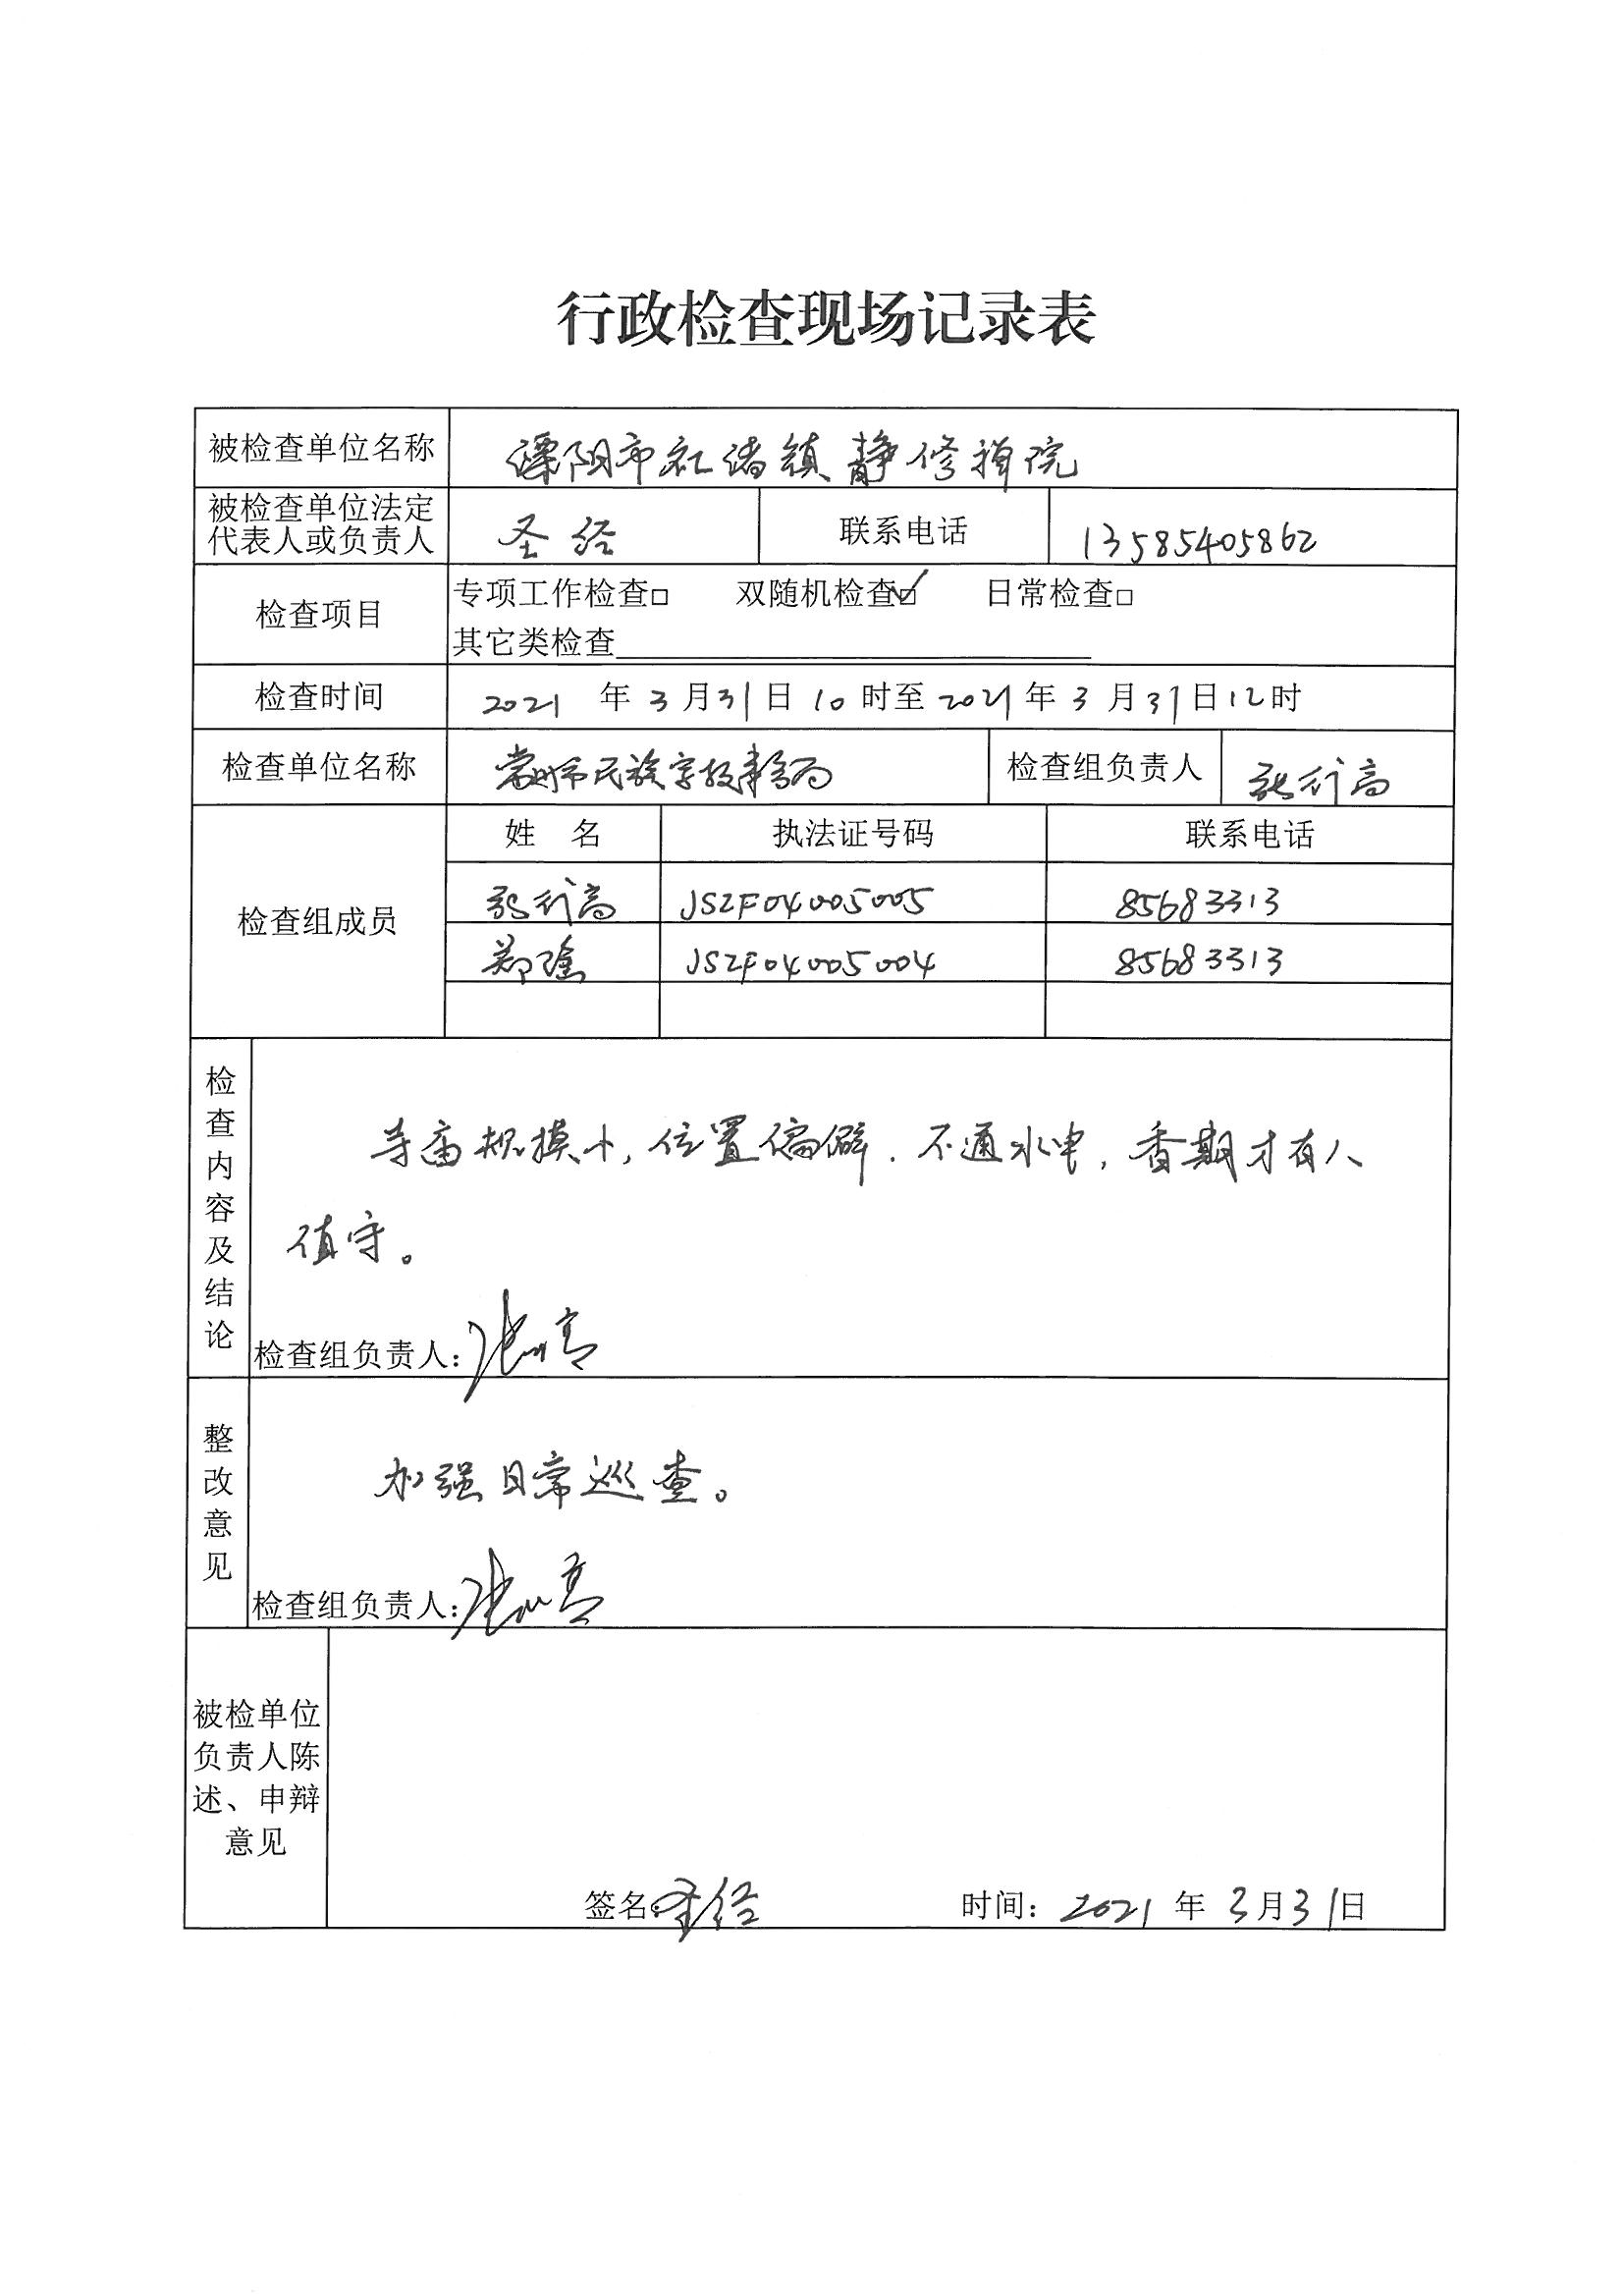 行政检查现场记录表
被检查单位名称 溧阳市社渚镇静修禅院
被检查单位法定代表人或负责人 圣经 联系电话 13585405862
检查项目 专项工作检查□ 双随机检查☑ 日常检查□
其它类检查
检查时间 2021 年 3 月 31 日 10 时至 2021 年 3 月 31 日 12 时
检查单位名称 常州市民族宗教事务局 检查组负责人 张行高
检查组成员 姓 名 执法证号码 联系电话
张行高 JSZF04005005 85683313
郑 JSZF04005004 85683313
检查内容及结论
寺庙规模小,位置偏僻.不通水电,香期才有人
值守。
检查组负责人:张行高
整改意见
加强日常巡查。
检查组负责人:张行高
被检单位负责人陈述、申辩意见
签名:圣经 时间:2021 年 3 月 31 日